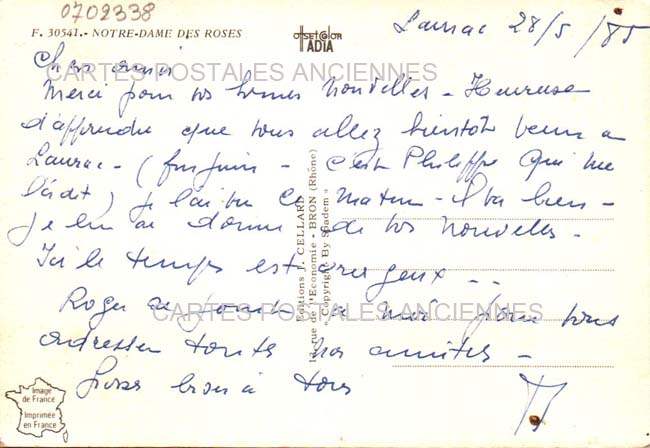 0702338
F. 30541.- NOTRE-DAME DES ROSES
OFFSET COLOR
IADIA
Laurac 28/5/85
Chers amis
CARTES POSTALES ANCIENNES
Merci pour vos bonnes nouvelles - Heureuse
d'apprendre que vous allez bientôt venir à
Laurac - (fin juin - c'est Philippe qui me
l'a dit) je l'ai vu ce matin - il va bien -
je lui ai donné de vos nouvelles -
Ici le temps est orageux ..
Roger se joint à moi pour vous
CARTES POSTALES ANCIENNES
adresser toutes nos amitiés -
bises à tous
Editions J. CELLARD
11, rue de l'Economie - BRON (Rhône)
« Copyright By Spadem »
Image
de France
Imprimée
en France